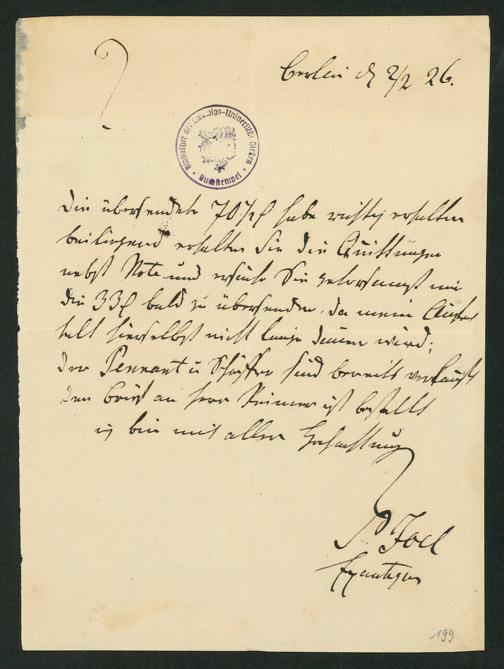 ?
Berlin d 2/2 26.
Bibliothek der Ludwigs-Universität Giessen
Buchstempel
Die übersendete 70 habe richtig erhalten
beiliegend erhalten Sie die Quittungen
nebst Nota und ersuche Sie gehorsamst mir
die 33 bald zu übersenden, da mein Aufent
halt hierselbst nicht lange dauern wird;
der Pennant u Schäffer sind bereits verkauft
den Brief an Herrn ist bestellt
ich bin mit aller Hochachtung
Joel
199